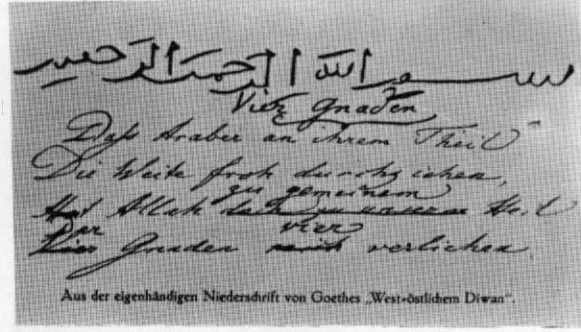 بسم الله الرحمن الرحيم
Vier Gnaden
Daß Araber an ihrem Theil
Die Weite froh durchziehen,
zu gemeinem
Hat Allah Heil
Der vier
Gnaden verliehen.
Aus der eigenhändigen Niederschrift von Goethes „West-östlichem Diwan“.